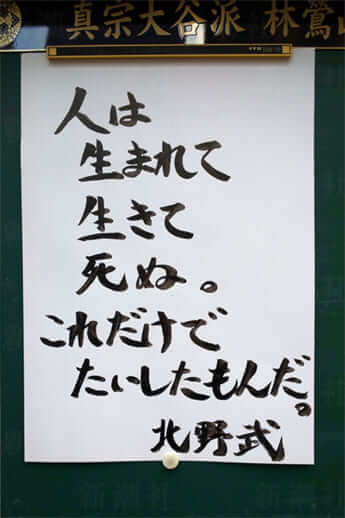 真宗大谷派 林鶯山
人は
生まれて
生きて
死ぬ。
これだけで
たいしたもんだ。
北野武